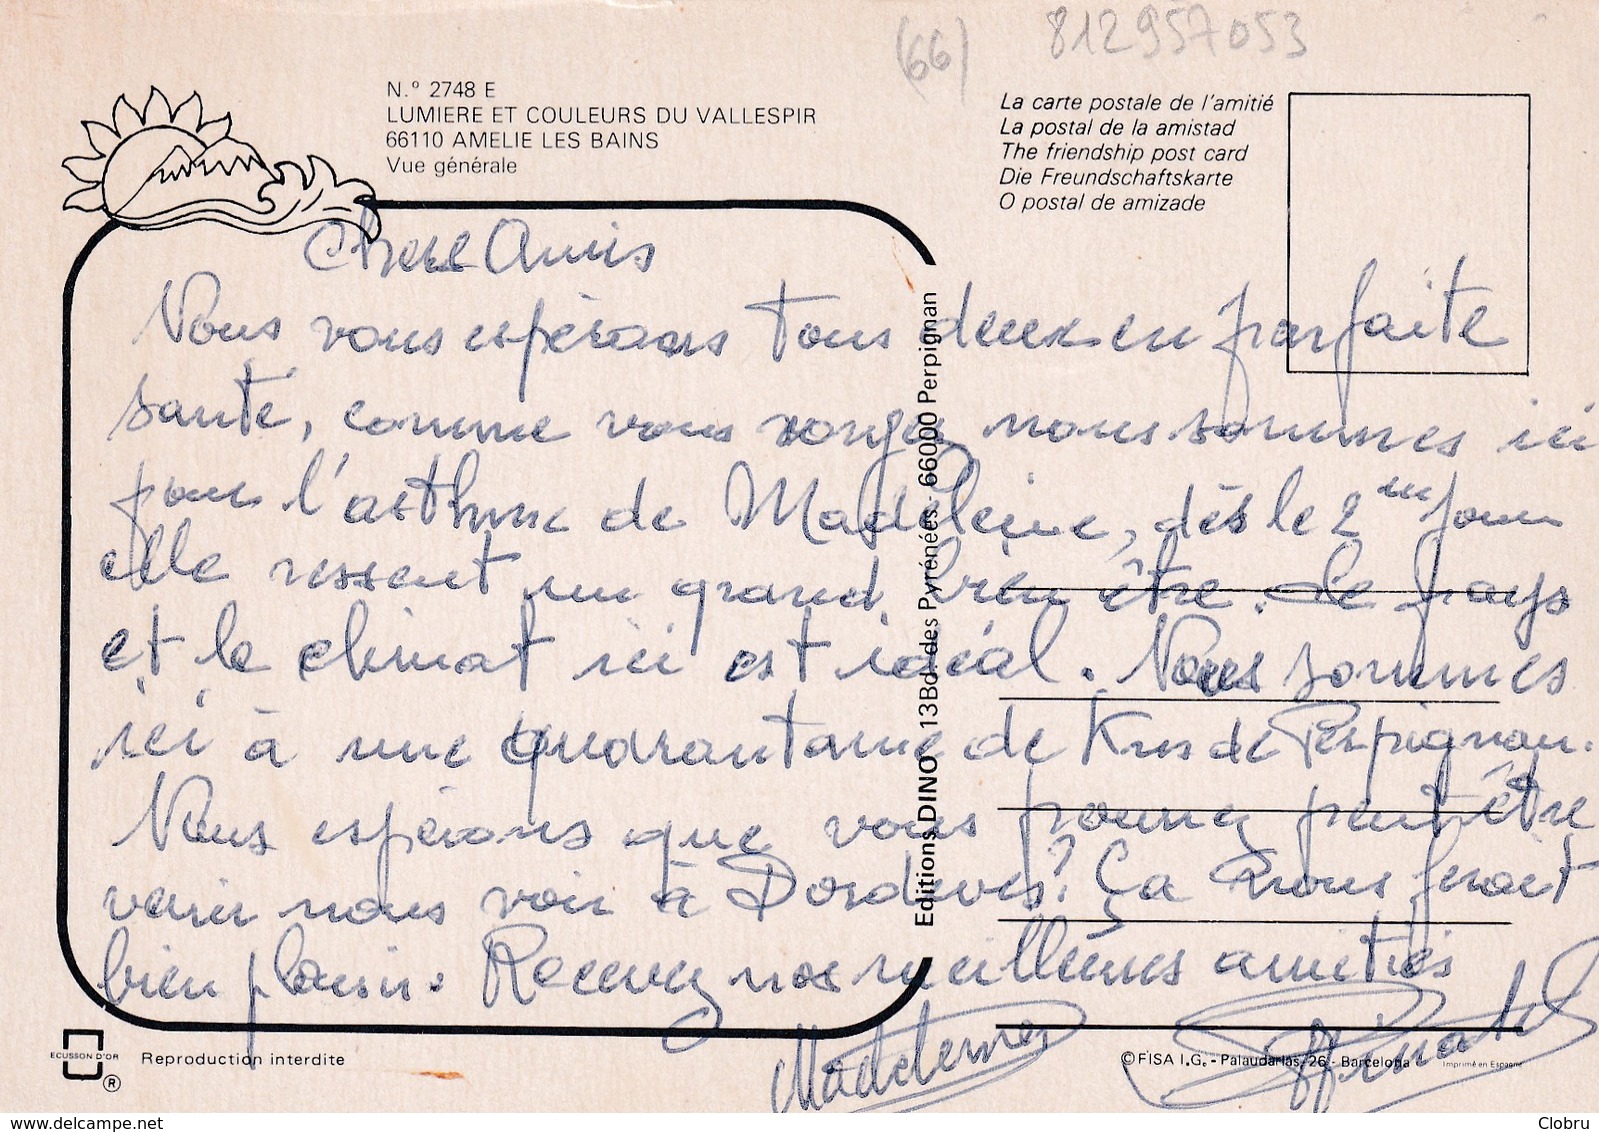 (66) 812957053
N.º 2748 E
LUMIERE ET COULEURS DU VALLESPIR
66110 AMELIE LES BAINS
Vue générale
La carte postale de l'amitié
La postal de la amistad
The friendship post card
Die Freundschaftskarte
O postal de amizade
Chers Amis
Nous vous espérons tous deux en parfaite
santé, comme vous voyez nous sommes ici
pour l'asthme de Madeleine, dès le 2em jour
elle ressent un grand bien être. Le pays
et le climat ici est idéal. Nous sommes
ici à une quarantaine de Kms de Perpignan.
Nous espérons que vous pourrez peut être
venir nous voir à Dordives? Ça nous ferait
bien plaisir. Recevez nos meilleures amitiés
Madeleine
Editions DINO 13Bd des Pyrénées. 66000 Perpignan
ECUSSON D'OR
®
Reproduction interdite
©FISA I.G. - Palaudarias, 26 - Barcelona
Imprimé en Espagne
www.delcampe.net
Clobru